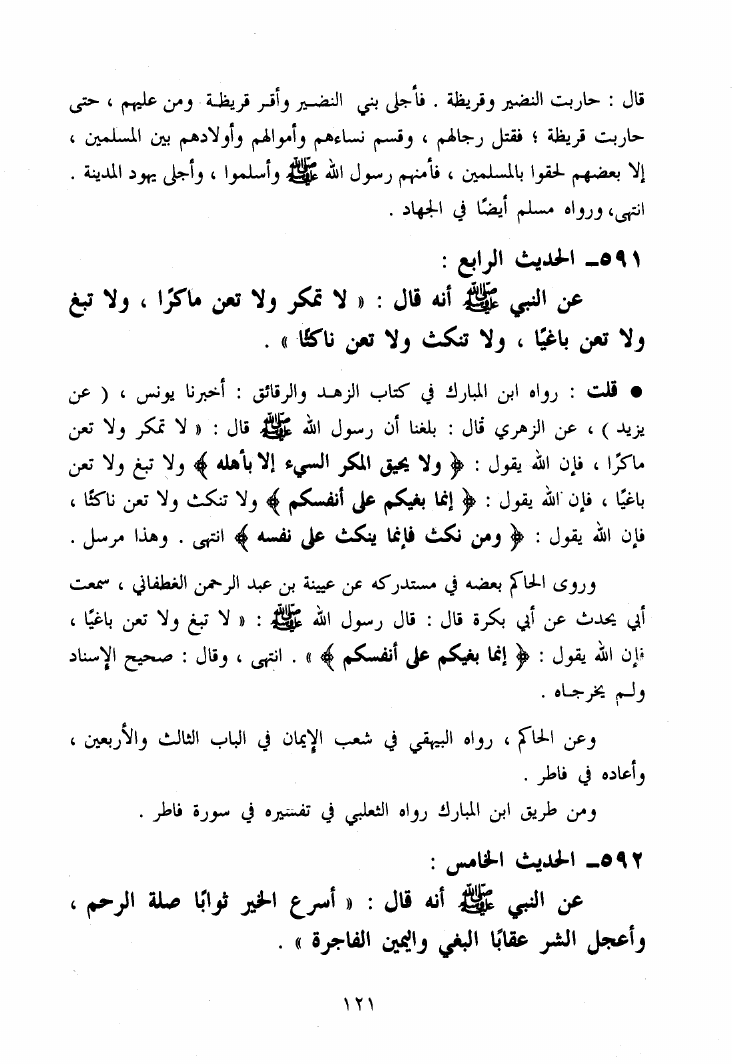 قال : حاربت النضير وقريظة . فأجلى بني النضير وأقر قريظة ومن عليهم ، حتى
حاربت قريظة ؛ فقتل رجالهم ، وقسم نساءهم وأموالهم وأولادهم بين المسلمين ،
إلا بعضهم لحقوا بالمسلمين ، فأمنهم رسول الله ﷺ وأسلموا ، وأجلى يهود المدينة .
انتهى، ورواه مسلم أيضًا في الجهاد .
٥٩١ـ الحديث الرابع :
عن النبي ﷺ أنه قال : « لا تمكر ولا تعن ماكرًا ، ولا تبغ
ولا تعن باغيًا ، ولا تنكث ولا تعن ناكثًا » .
● قلت : رواه ابن المبارك في كتاب الزهد والرقائق : أخبرنا يونس ، ( عن
يزيد ) ، عن الزهري قال : بلغنا أن رسول الله ﷺ قال : « لا تمكر ولا تعن
ماكرًا ، فإن الله يقول : ﴿ ولا يحيق المكر السيء إلا بأهله ﴾ ولا تبغ ولا تعن
باغيًا ، فإن الله يقول : ﴿ إنما بغيكم على أنفسكم ﴾ ولا تنكث ولا تعن ناكثًا ،
فإن الله يقول : ﴿ ومن نكث فإنما ينكث على نفسه ﴾ انتهى . وهذا مرسل .
وروى الحاكم بعضه في مستدركه عن عيينة بن عبد الرحمن الغطفاني ، سمعت
أبي يحدث عن أبي بكرة قال : قال رسول الله ﷺ : « لا تبغ ولا تعن باغيًا ،
فإن الله يقول : ﴿ إنما بغيكم على أنفسكم ﴾ » . انتهى ، وقال : صحيح الإسناد
ولم يخرجاه .
وعن الحاكم ، رواه البيهقي في شعب الإيمان في الباب الثالث والأربعين ،
وأعاده في فاطر .
ومن طريق ابن المبارك رواه الثعلبي في تفسيره في سورة فاطر .
٥٩٢ـ الحديث الخامس :
عن النبي ﷺ أنه قال : « أسرع الخير ثوابًا صلة الرحم ،
وأعجل الشر عقابًا البغي واليمين الفاجرة » .
١٢١